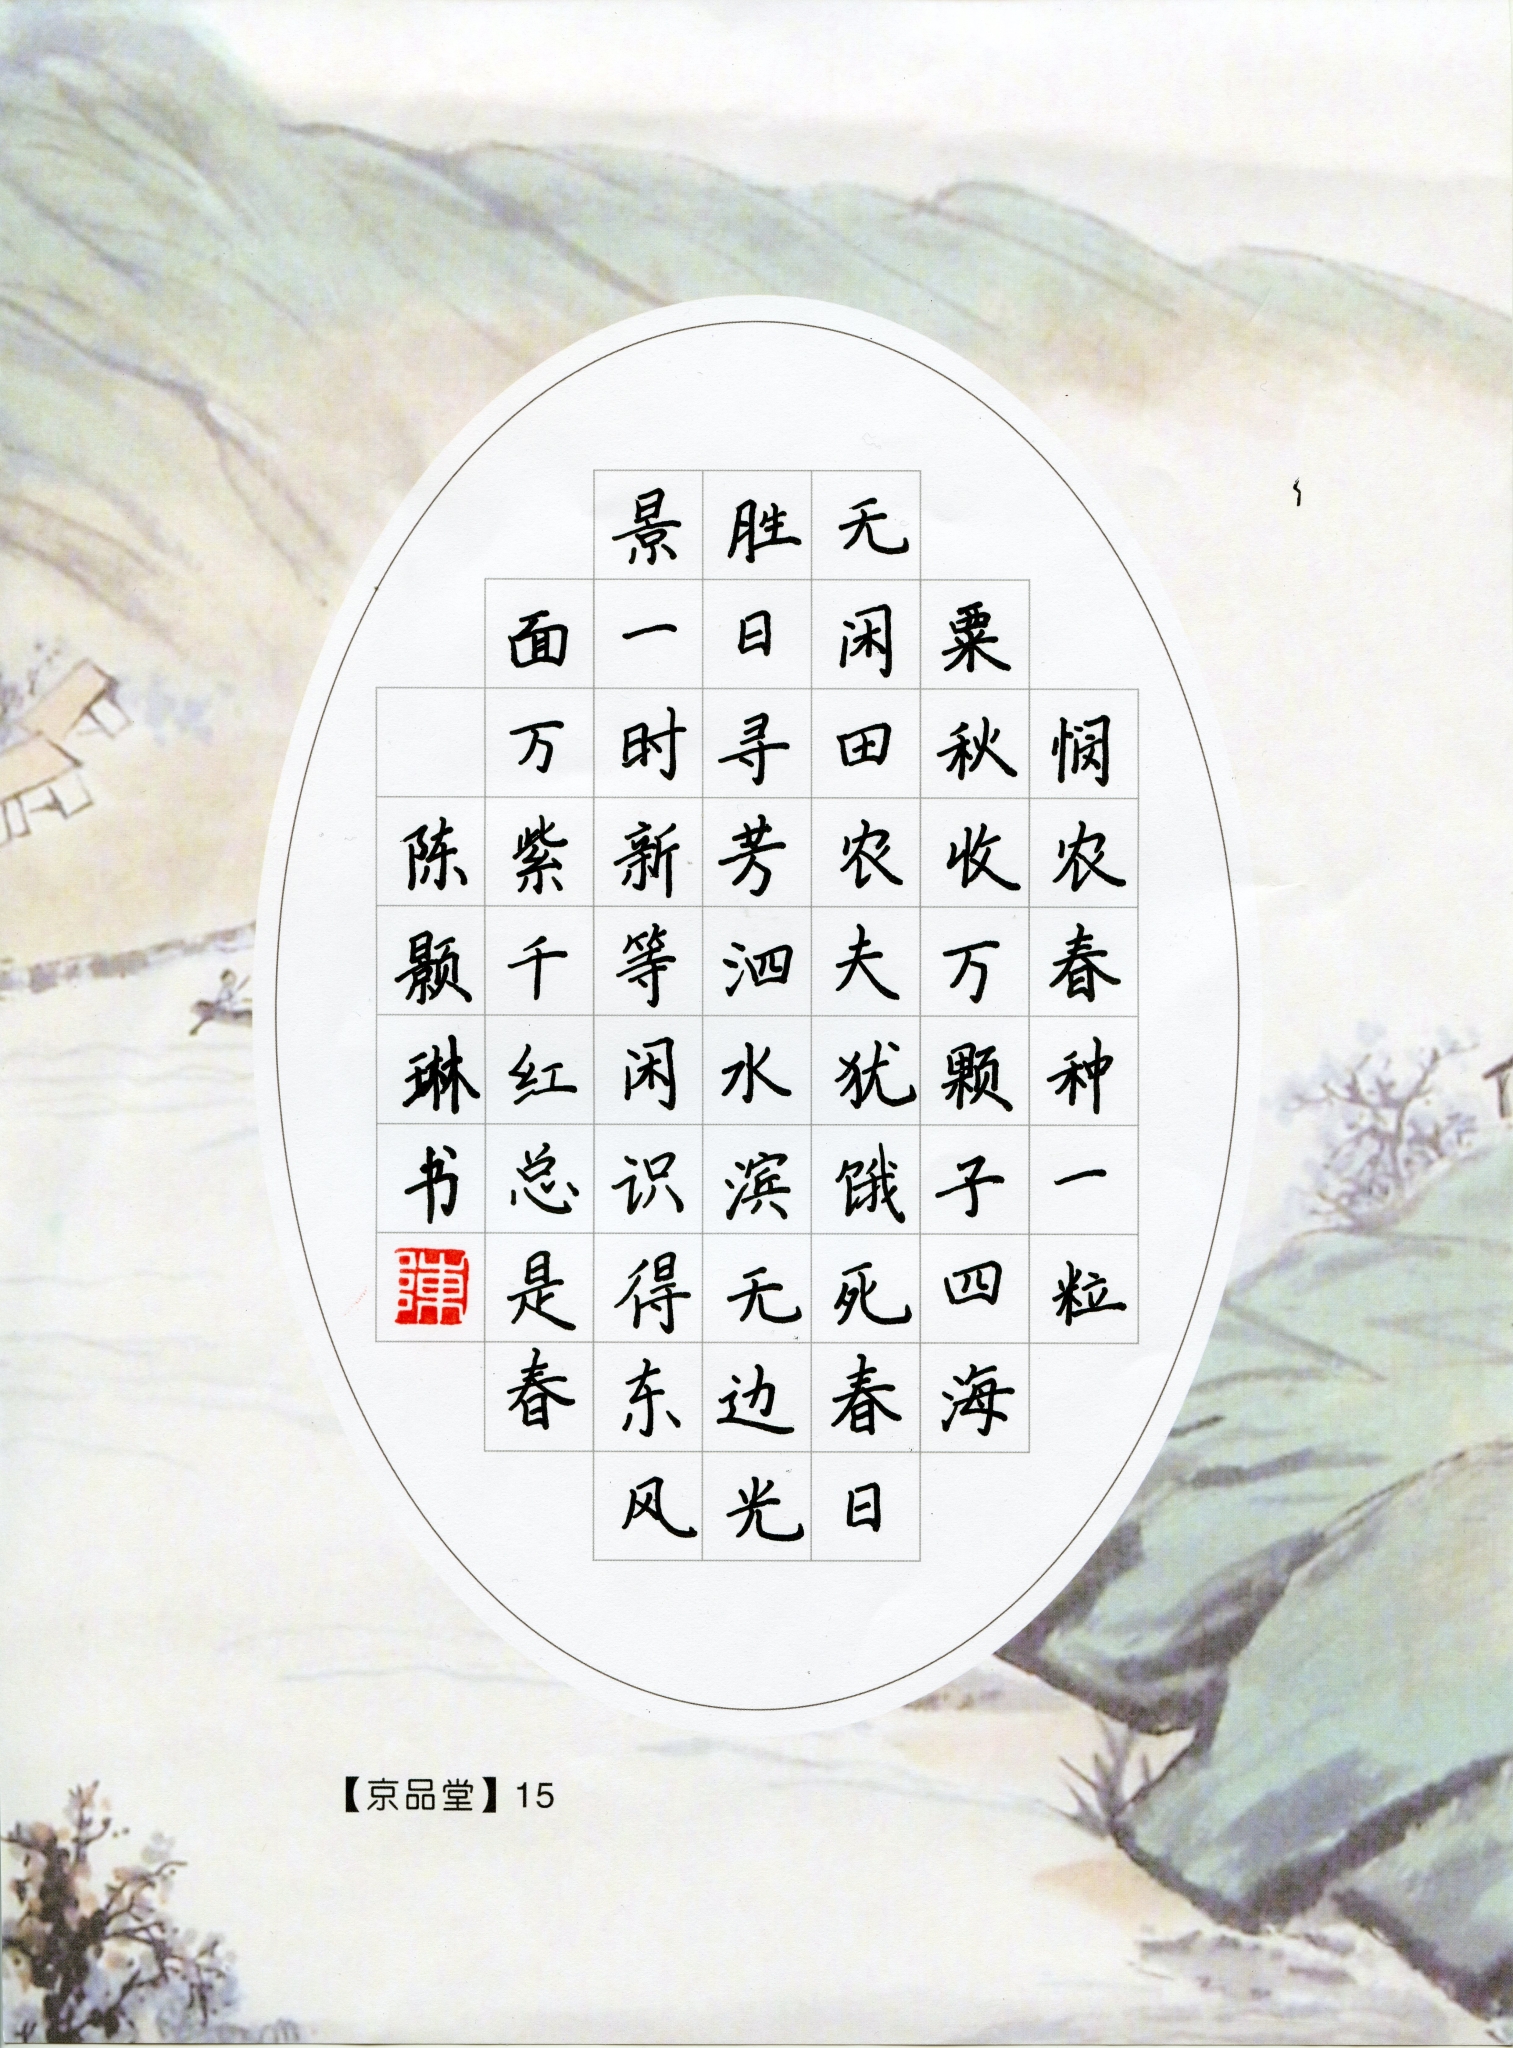 悯农春种一粒
粟秋收万颗子四海
无闲田农夫犹饿死春日
胜日寻芳泗水滨无边光
景一时新等闲识得东风
面万紫千红总是春
陈颢琳书
陳
【京品堂】15